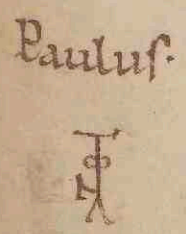 Pauluſ.